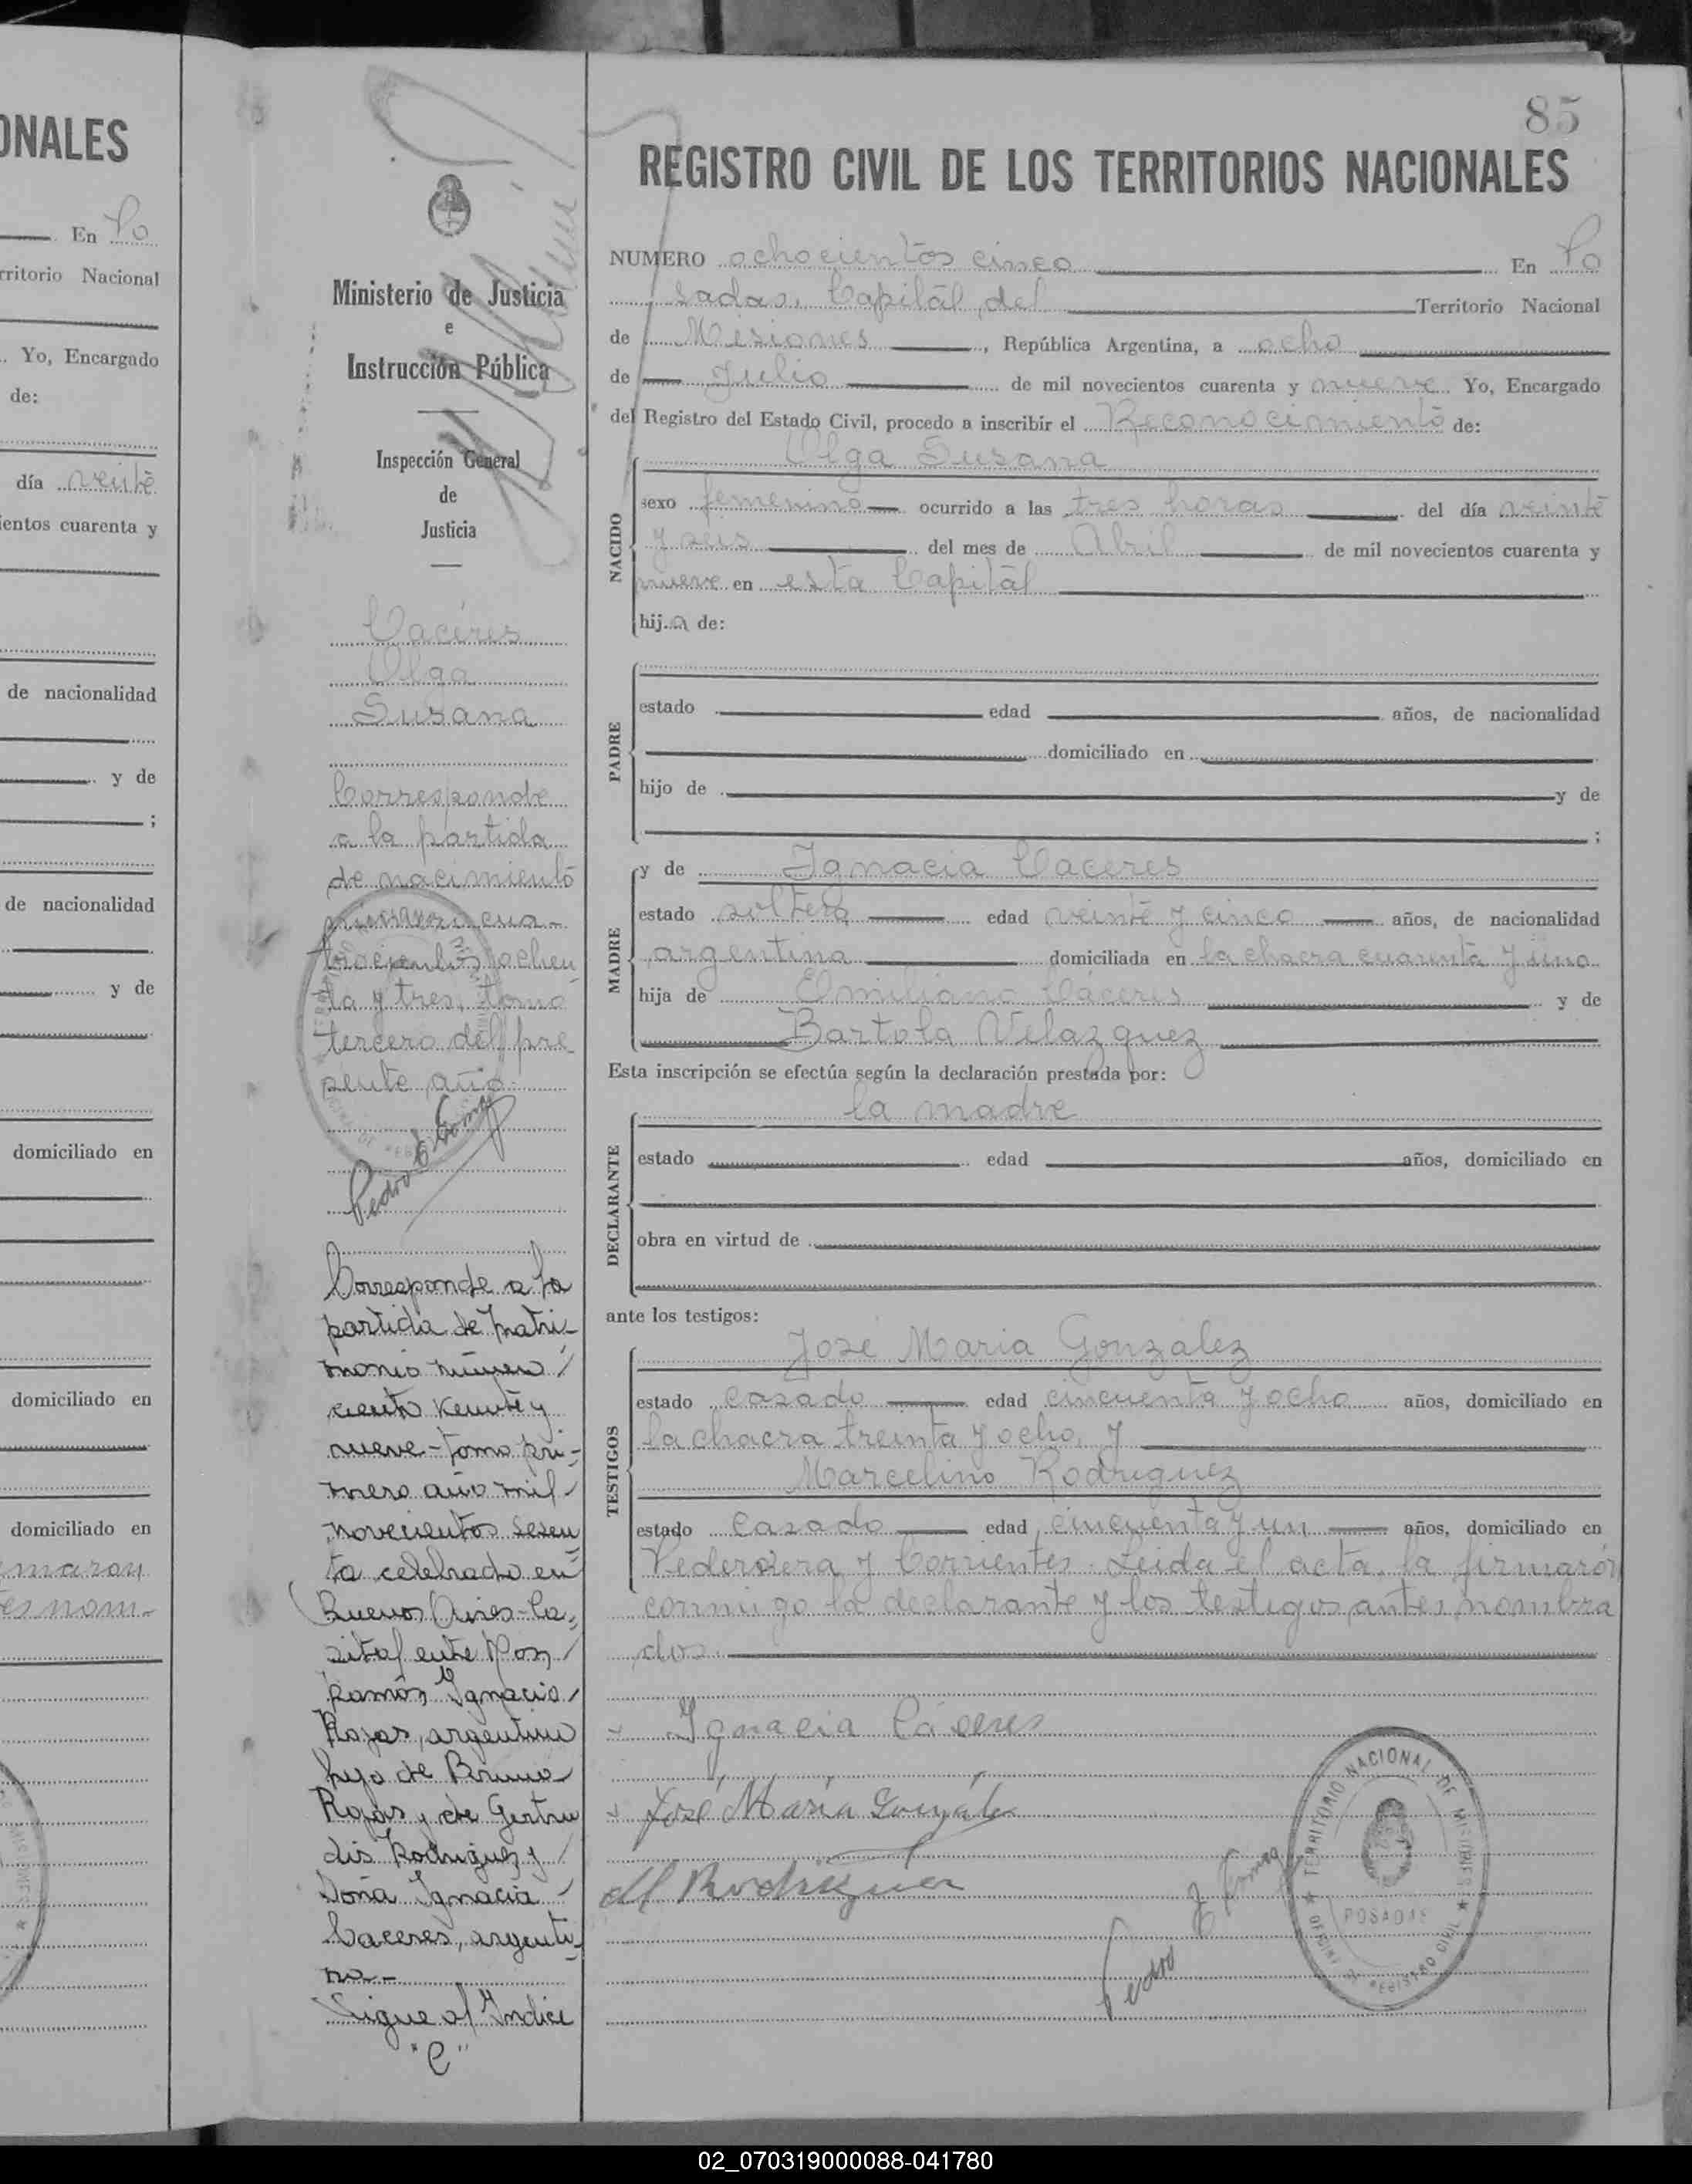 ONALES
En Po
rritorio Nacional
Yo, Encargado
de:
día veinte
ientos cuarenta y
de nacionalidad
y de
;
de nacionalidad
y de
domiciliado en
domiciliado en
domiciliado en
maron
es nom-
85
Ministerio de Justicia
e
Instrucción Pública
Inspección General
de
Justicia
Caceres
Olga
Susana
Corresponde
a la partida
de nacimiento
número cua-
trocientos ochen
ta y tres, tomo
tercero del pre
sente año.
Pedro E Gomez
Corresponde a la
partida de matri-
monio número
ciento veinte y
nueve - tomo pri-
mero año mil
novecientos sesen
ta celebrado en
Buenos Aires - Ca-
pital entre Don
Ramón Ignacio
Rojas, argentino
hijo de Bruno
Rojas y de Gertru
dis Rodriguez y
Doña Ignacia
Caceres, argenti-
na.-
Sigue al Indice
"C"
REGISTRO CIVIL DE LOS TERRITORIOS NACIONALES
NUMERO ochocientos cinco En Po
sadas, Capital del Territorio Nacional
de Misiones, República Argentina, a ocho
de Julio de mil novecientos cuarenta y nueve Yo, Encargado
del Registro del Estado Civil, procedo a inscribir el Reconocimiento de:
Olga Susana
NACIDO
sexo femenino ocurrido a las tres horas del día veinte
y seis del mes de Abril de mil novecientos cuarenta y
nueve en esta Capital
hija de:
PADRE
estado edad años, de nacionalidad
domiciliado en
hijo de y de
;
MADRE
y de Ignacia Caceres
estado soltera edad veinte y cinco años, de nacionalidad
argentina domiciliada en la chacra cuarenta y uno
hija de Emiliano Cáceres y de
Bartola Velazquez
Esta inscripción se efectúa según la declaración prestada por:
la madre
DECLARANTE
estado edad años, domiciliado en
obra en virtud de
ante los testigos:
TESTIGOS
José Maria Gonzalez
estado casado edad cincuenta y ocho años, domiciliado en
la chacra treinta y ocho, y
Marcelino Rodriguez
estado casado edad cincuenta y un años, domiciliado en
Pedernera y Corrientes. Leida el acta, la firmarón
conmigo la declarante y los testigos antes nombra
dos.
Ignacia Cáceres
José María González
M Rodriguez
Pedro E Gomez
TERRITORIO NACIONAL DE MISIONES
POSADAS
OFICINA DE REGISTRO CIVIL
02_070319000088-041780